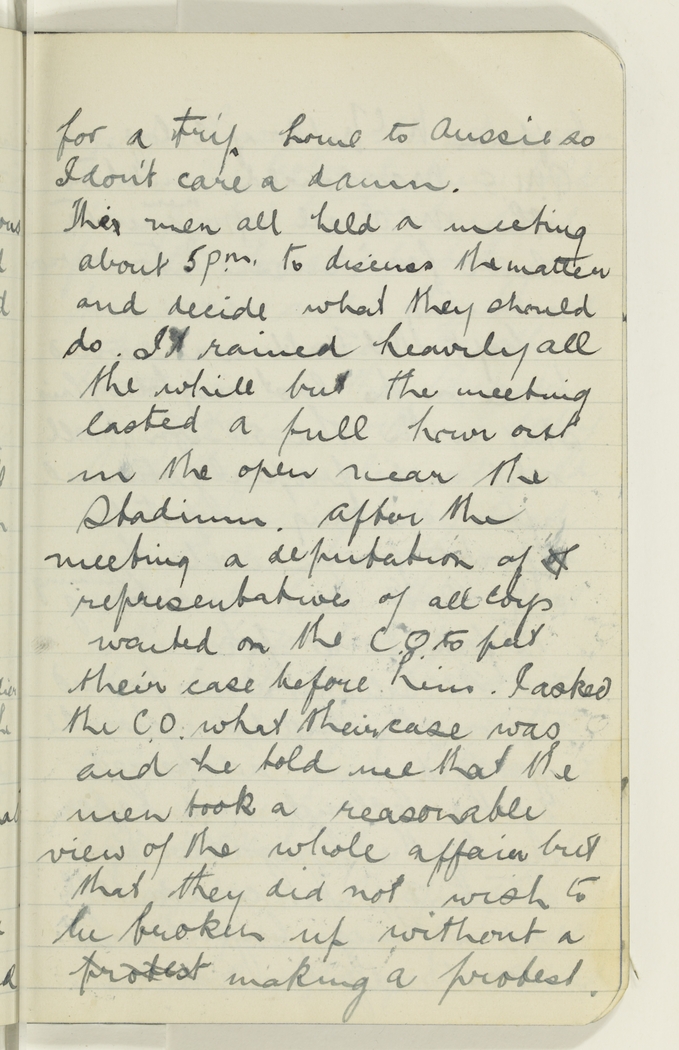 for a trip home to Aussie so
I don't care a damn.
The men all held a meeting
about 5 p.m. to discuss the matter
and decide what they should
do. It rained heavily all
the while but the meeting
lasted a full hour out
in the open near the
Stadium. After the
meeting a deputation of of
representatives of all corps
waited on the C.O. to put
their case before him. I asked
the C.O. what their case was
and he told me that the
men took a reasonable
view of the whole affair but
that they did not wish to
be broken up without a
protest making a protest.